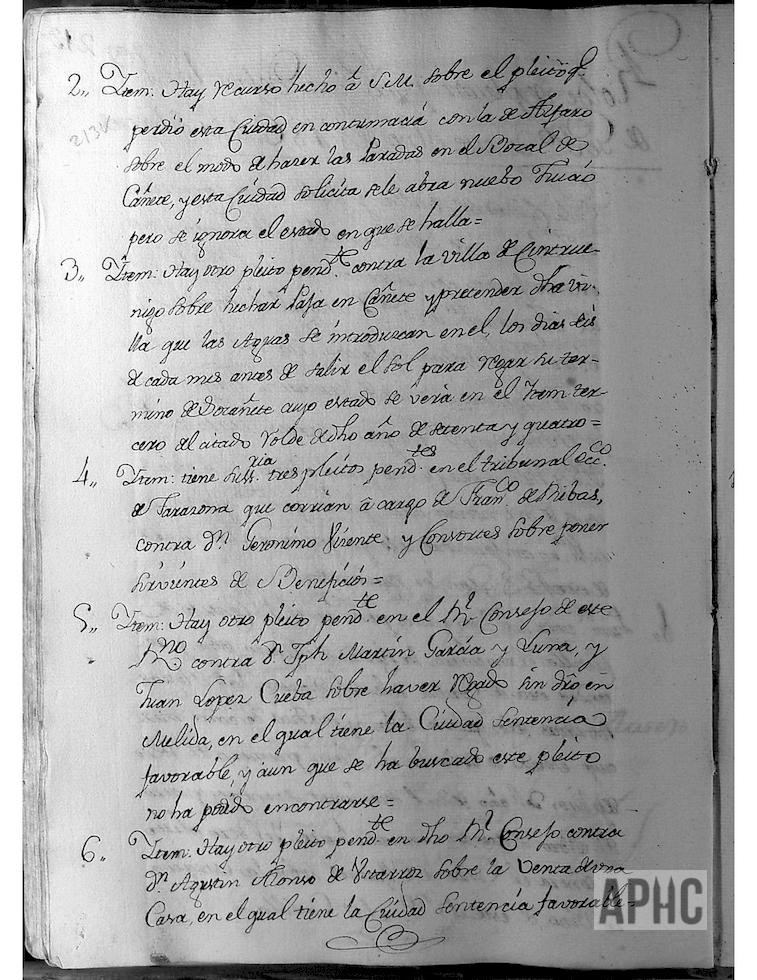 2,, Ytem: Hay recurso hecho â S.M. sobre el pleito q.e
perdiò esta Ciudad en contumacia con la de Alfaro
sobre el modo de hazer las Paradas en el Bocal de
Cañete, y esta Ciudad solicita sele abra nuebo Juicio
pero se ignora el estado en que se halla=
3,, Ytem: Hay otro pleito pend.te contra la villa de Cintrue-
nigo sobre hechar Paja en Cañete y pretender dha vi-
lla que las Aguas se introduzcan en el, los dias seis
de cada mes antes de salir el sol para regar su ter-
mino de cuyo estado se verá en el Ytem ter-
cero del citado Rolde de dho año de setenta y quatro=
4,, Ytem: tiene su S.ria tres pleitos pend.tes en el tribunal Ecc.co
de Tarazona que corrian â cargo de Fran.co de Ribas,
contra d.n Geronimo Vizente y Consortes sobre poner
sirvientes de Beneficios=
5,, Ytem: Hay otro pleito pend.te en el R.l Consejo de este
R.no contra d.n Jph Martin Garcia y Luna, y
Juan Lopez Cueba sobre haver regado sin dro en
Melida, en el qual tiene la Ciudad Sentencia
favorable, y aun que se ha buscado este pleito
no ha podido encontrarse=
6,, Ytem: Hay otro pleito pend.te en dho R.l Consejo contra
d.n Agustin Alonso de Ustarroz sobre la Venta de una
Casa, en el qual tiene la Ciudad Sentencia favorable=
APHC